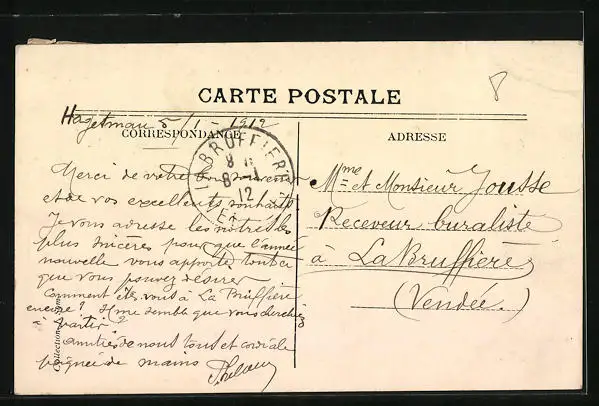 8
CARTE POSTALE
Hagetmau 5/1 - 1912
CORRESPONDANCE
ADRESSE
LA BRUFFIERE
8
8 - 1
12
Merci de votre bon souvenir
et de vos excellents souhaits
Je vous adresse les nôtres les
plus sincères pour que l'année
nouvelle vous apporte tout ce
que vous pouvez désirer
Comment êtes vous à La Bruffière
encore? Il me semble que vous cherchiez
à partir?
amitiés de nous tous et cordiale
poignée de mains
Mme et Monsieur Jousse
Receveur buraliste
à La Bruffière
(Vendée.)
Collection